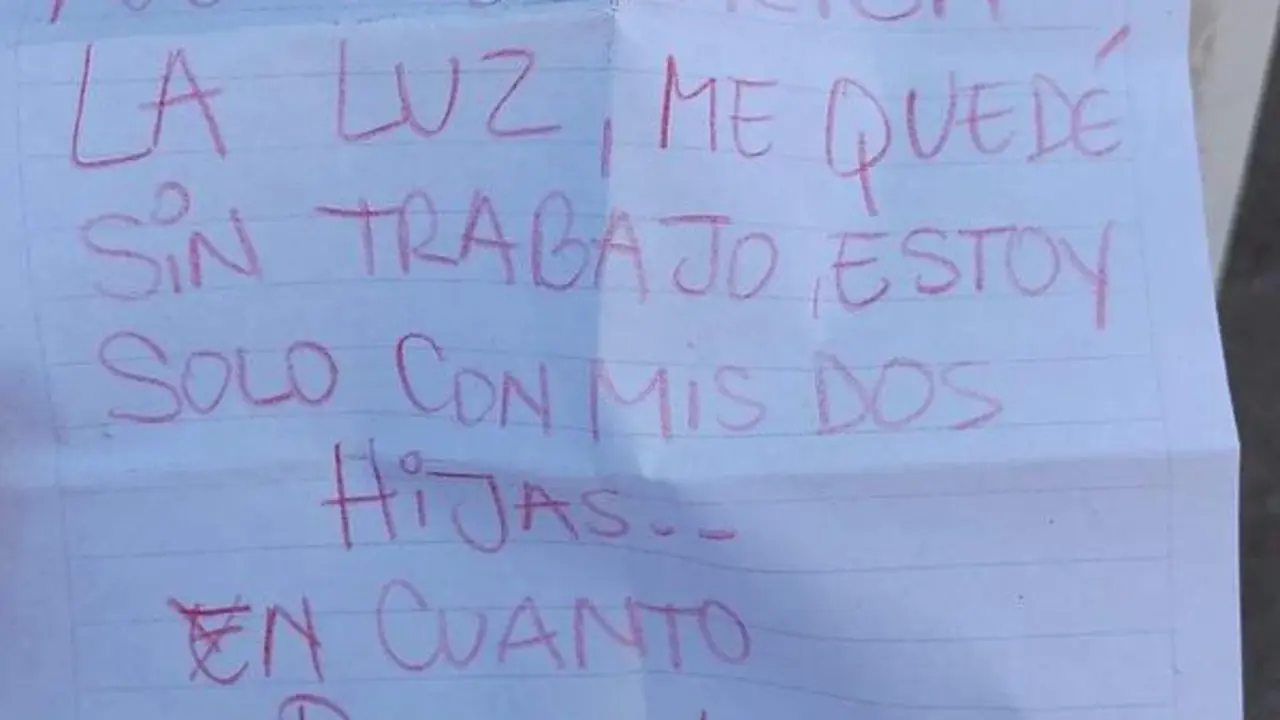 LA LUZ, ME QUEDÉ
SiN TRABAJO, ESTOY
SOLO CON MiS DOS
HiJAS...
EN CUANTO